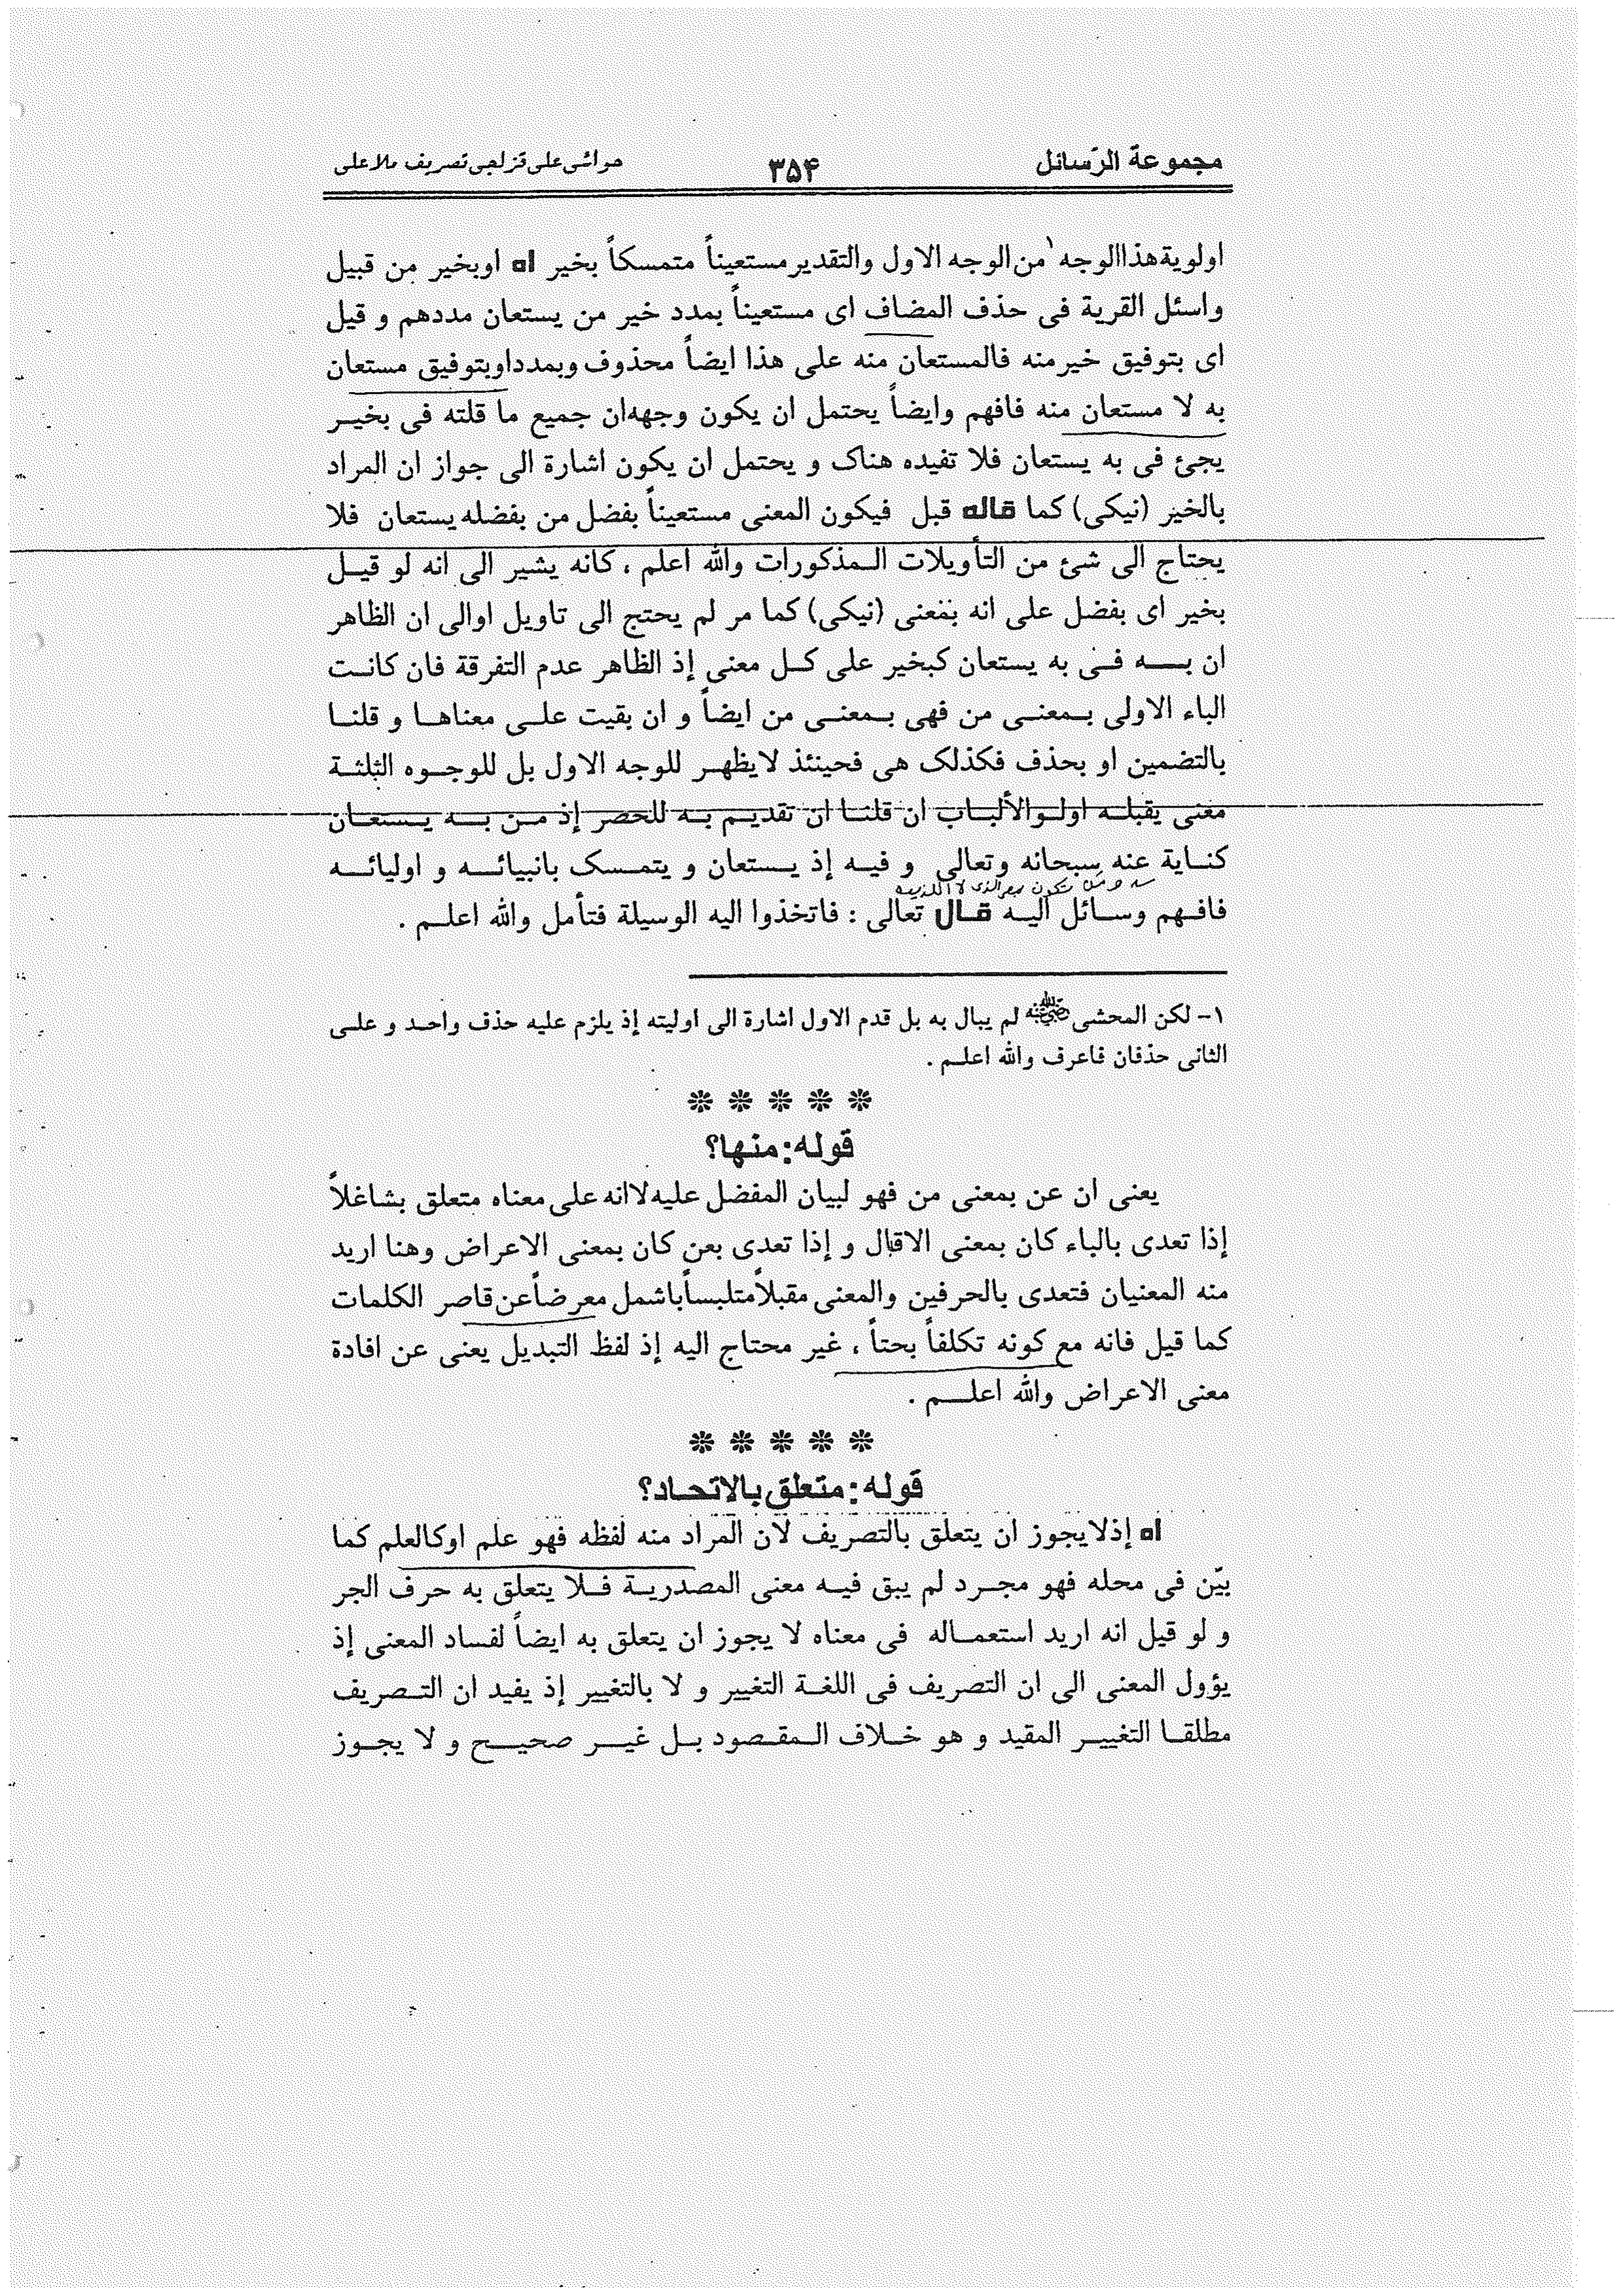 مجموعة الرّسائل ۳۵۴ حواشی علی قزلجی تصریف ملا علی
اولویة هذا الوجه ۱ من الوجه الاول والتقدیر مستعیناً متمسکاً بخیر اه اوبخیر من قبیل
واسئل القریة فی حذف المضاف ای مستعیناً بمدد خیر من یستعان مددهم و قیل
ای بتوفیق خیر منه فالمستعان منه علی هذا ایضاً محذوف وبمدد اوبتوفیق مستعان
به لا مستعان منه فافهم وایضاً یحتمل ان یکون وجهه ان جمیع ما قلته فی بخیر
یجئ فی به یستعان فلا تفیده هناک و یحتمل ان یکون اشارة الی جواز ان المراد
بالخیر (نیکی) کما قاله قبل فیکون المعنی مستعیناً بفضل من بفضله یستعان فلا
یحتاج الی شئ من التأویلات المذکورات والله اعلم ، کانه یشیر الی انه لو قیل
بخیر ای بفضل علی انه بمعنی (نیکی) کما مر لم یحتج الی تاویل اوالی ان الظاهر
ان به فی به یستعان کبخیر علی کل معنی إذ الظاهر عدم التفرقة فان کانت
الباء الاولی بمعنی من فهی بمعنی من ایضاً و ان بقیت علی معناها و قلنا
بالتضمین او بحذف فکذلک هی فحینئذ لایظهر للوجه الاول بل للوجوه الثلثة
معنی یقبله اولوالألباب ان قلنا ان تقدیم به للحصر إذ من به یستعان
کنایة عنه سبحانه وتعالی و فیه إذ یستعان و یتمسک بانبیائه و اولیائه
فافهم وسائل الیه قال تعالی : فاتخذوا الیه الوسیلة فتأمل والله اعلم .
۱- لکن المحشی لم یبال به بل قدم الاول اشارة الی اولیته إذ یلزم علیه حذف واحد و علی
الثانی حذفان فاعرف والله اعلم .
قوله: منها؟
یعنی ان عن بمعنی من فهو لبیان المفضل علیه لا انه علی معناه متعلق بشاغلاً
إذا تعدی بالباء کان بمعنی الاقبال و إذا تعدی بعن کان بمعنی الاعراض وهنا ارید
منه المعنیان فتعدی بالحرفین والمعنی مقبلاً متلبساً باشمل معرضاً عن قاصر الکلمات
کما قیل فانه مع کونه تکلفاً بحتاً ، غیر محتاج الیه إذ لفظ التبدیل یعنی عن افادة
معنی الاعراض والله اعلم .
قوله: متعلق بالاتحاد؟
اه إذ لایجوز ان یتعلق بالتصریف لان المراد منه لفظه فهو علم اوکالعلم کما
بیّن فی محله فهو مجرد لم یبق فیه معنی المصدریة فلا یتعلق به حرف الجر
و لو قیل انه ارید استعماله فی معناه لا یجوز ان یتعلق به ایضاً لفساد المعنی إذ
یؤول المعنی الی ان التصریف فی اللغة التغییر و لا بالتغییر إذ یفید ان التصریف
مطلقا التغییر المقید و هو خلاف المقصود بل غیر صحیح و لا یجوز